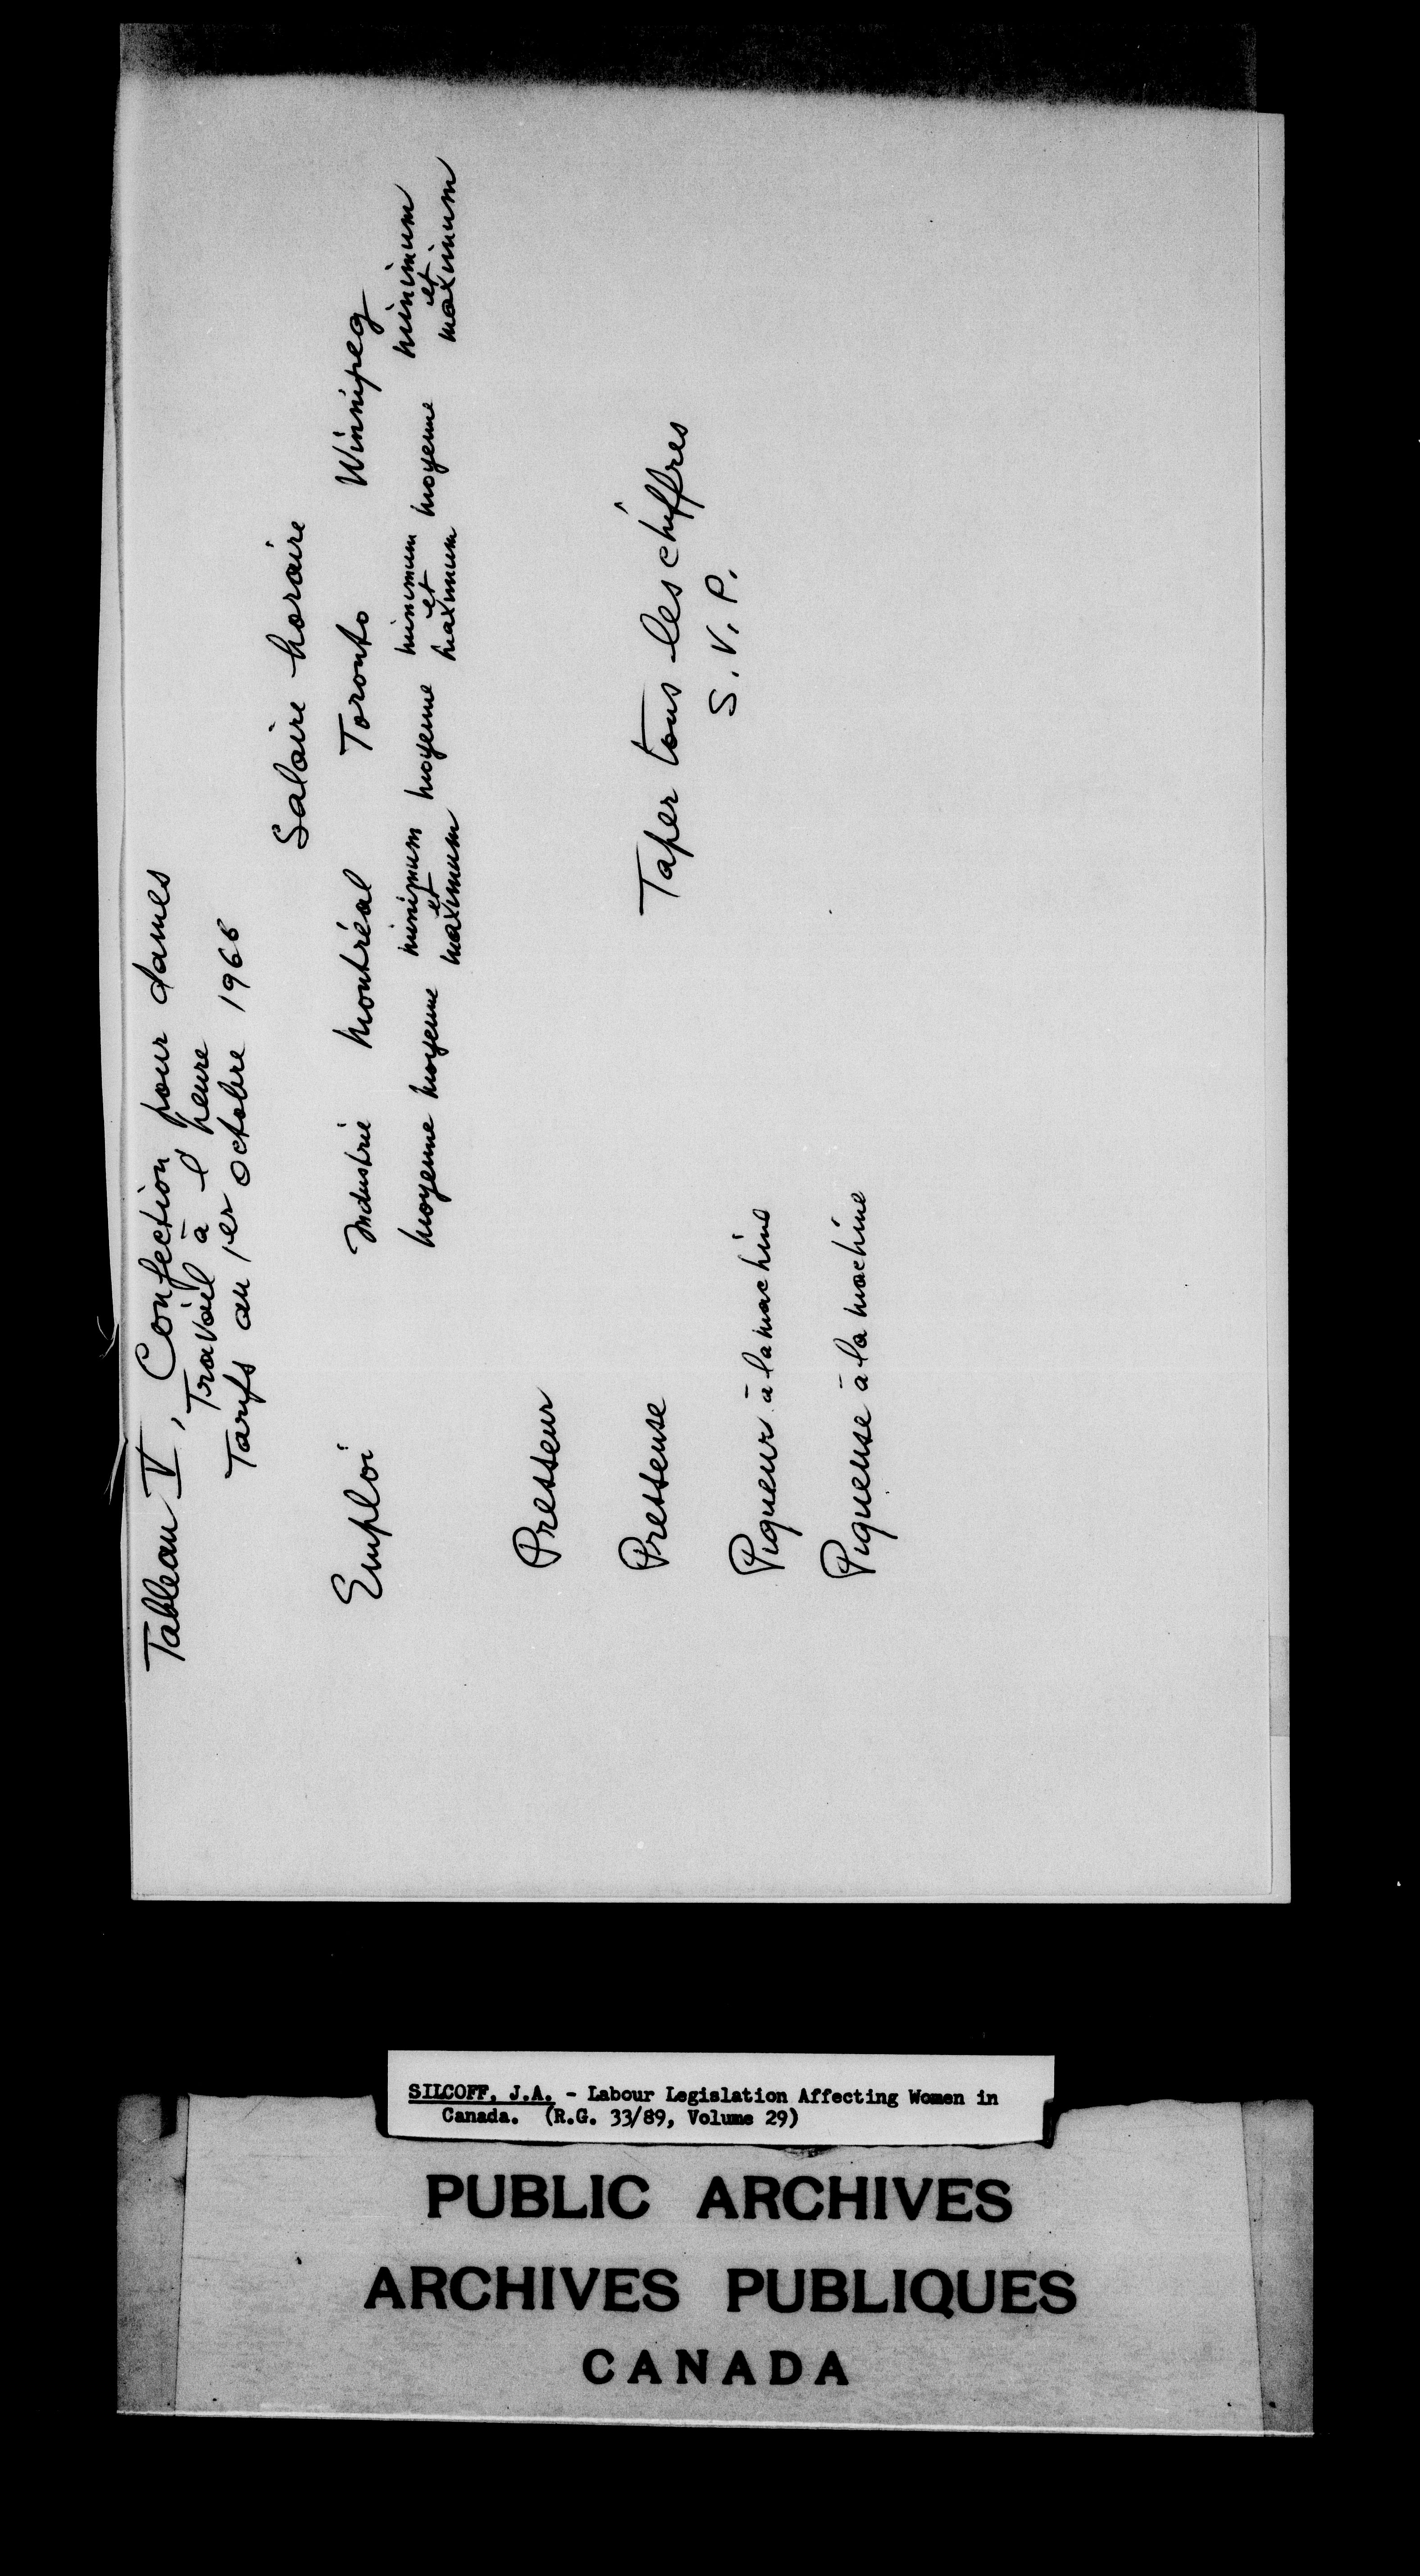 Tableau V, Confection pour dames
Travail à l'heure
Tarifs au 1er octobre 1966
Salaire horaire
Emploi Industrie Montréal Toronto Winnipeg
moyenne moyenne minimum et maximum moyenne minimum et maximum moyenne minimum et maximum
Presseur
Presseuse
Taper tous les chiffres
S.V.P.
Piqueur à la machine
Piqueuse à la machine
SILCOFF, J.A. - Labour Legislation Affecting Women in
Canada. (R.G. 33/89, Volume 29)
PUBLIC ARCHIVES
ARCHIVES PUBLIQUES
CANADA